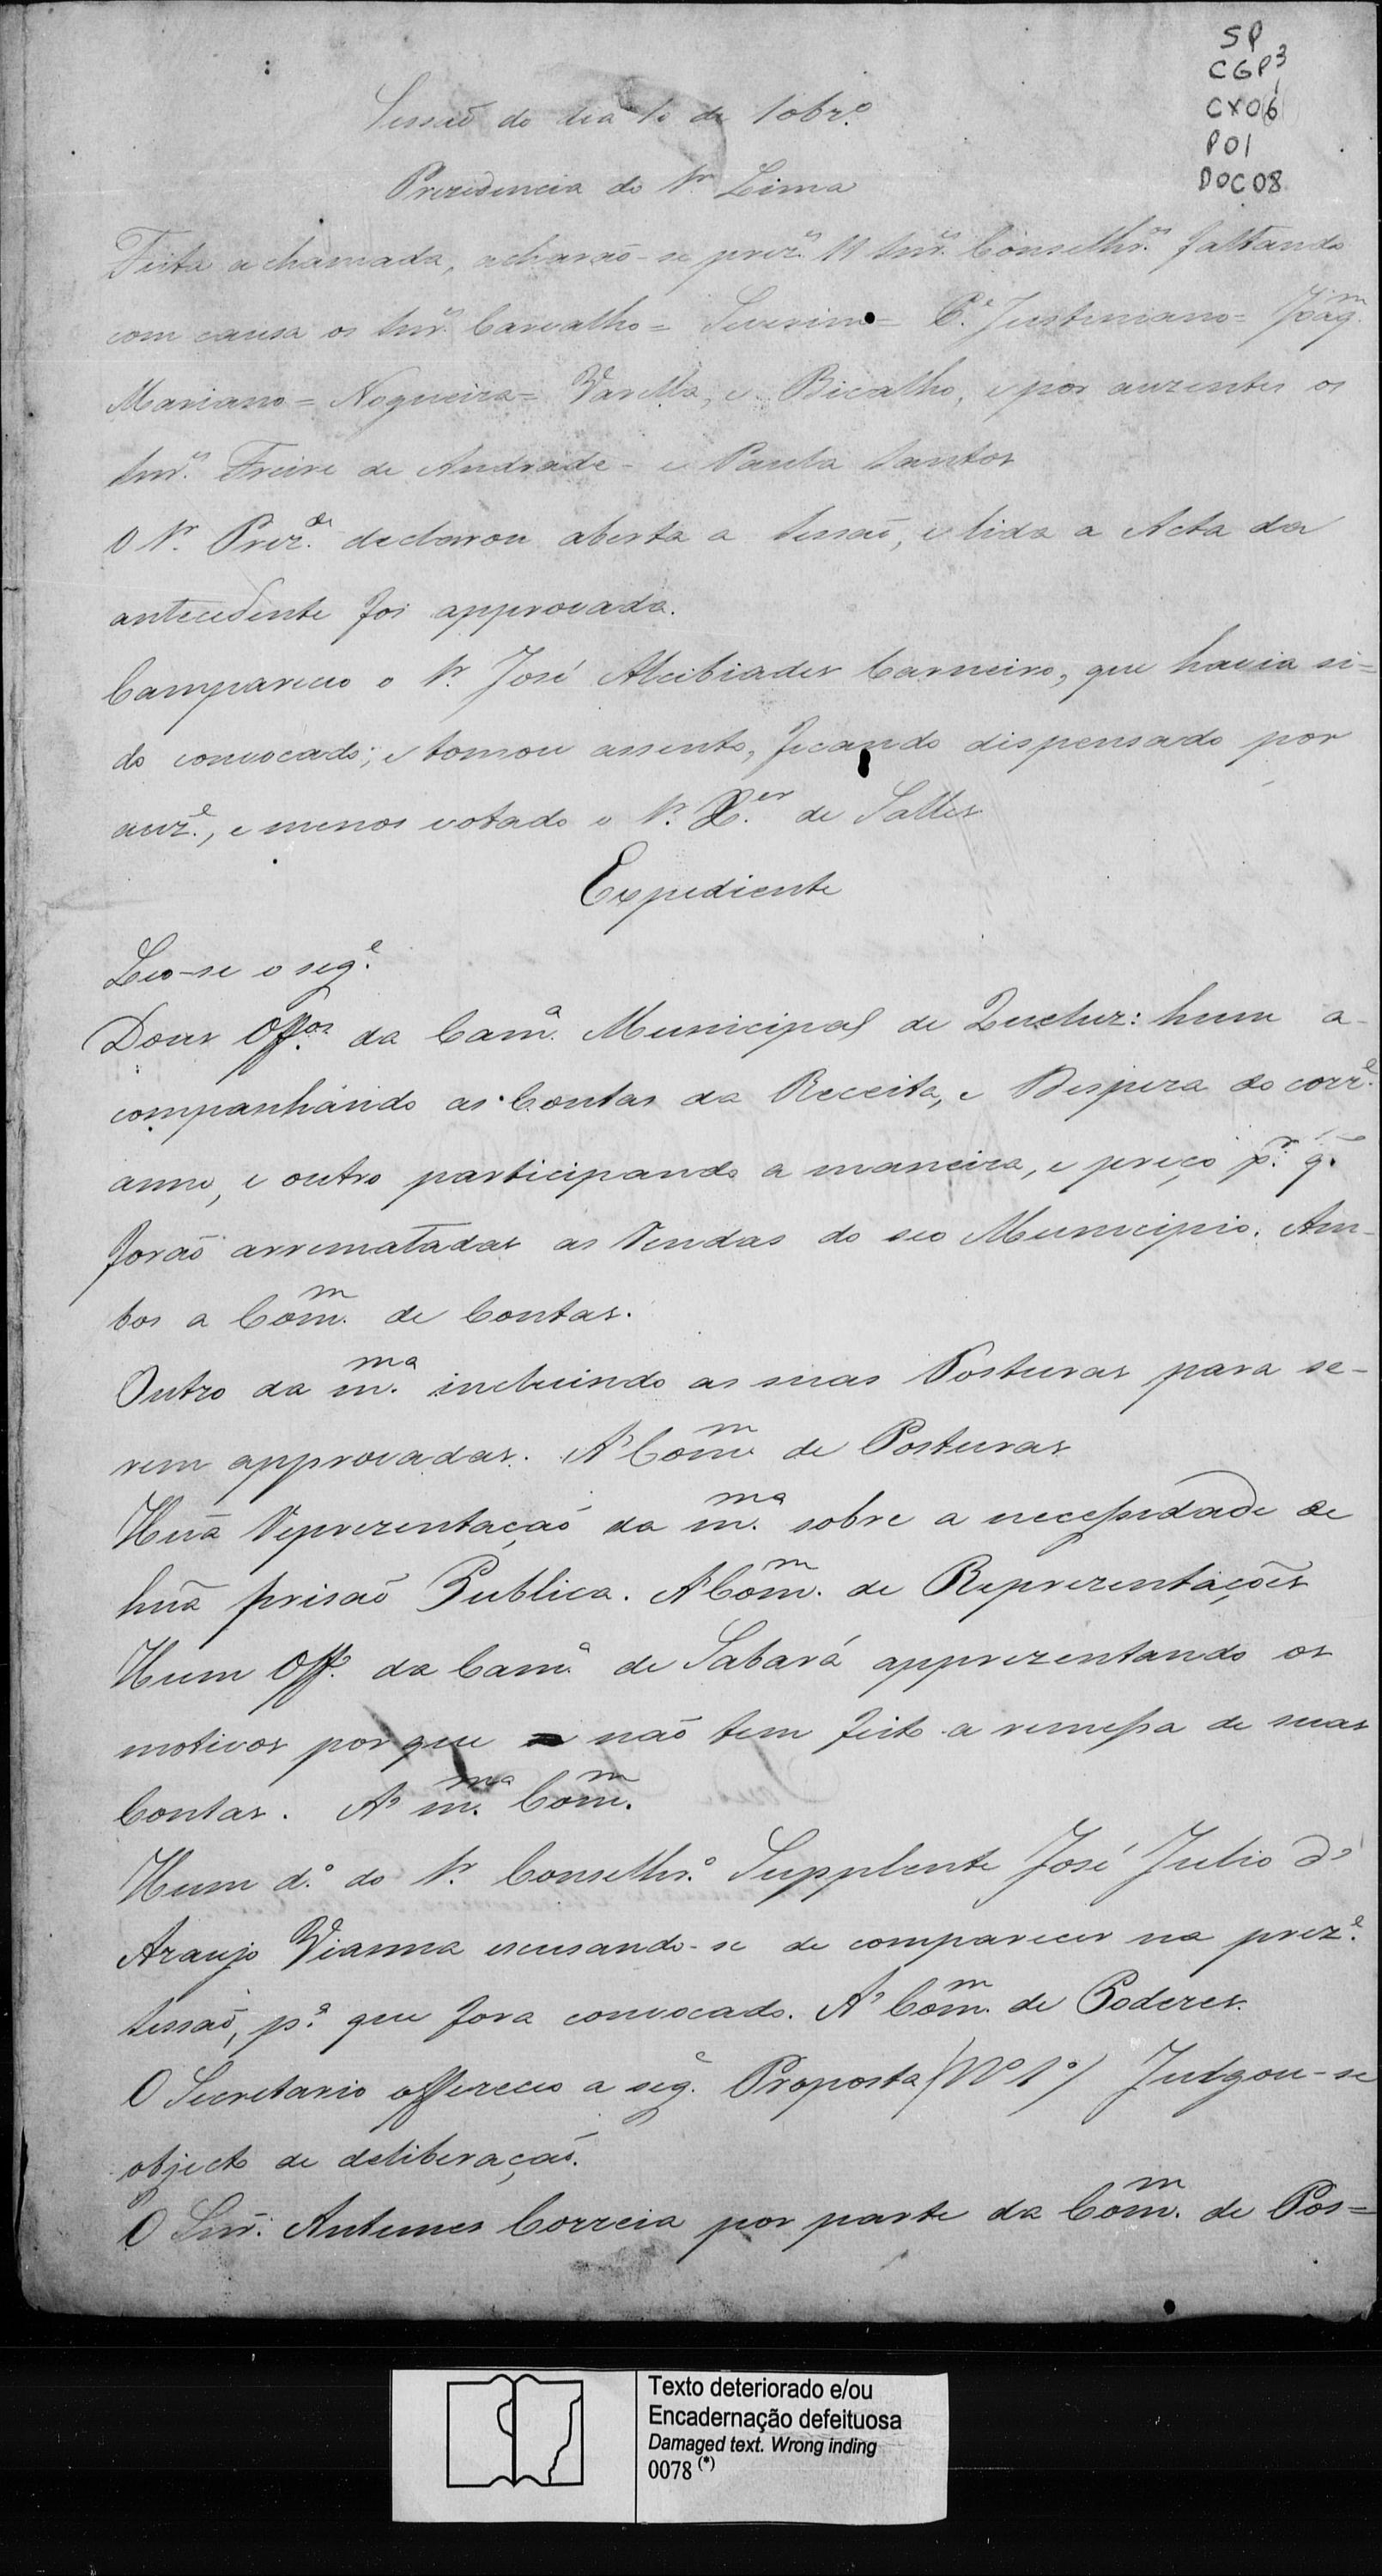 SP
CGP3
CX06
P01
DOC08
Sessaõ do dia 1º de 10brº
Prezidencia do Sr. Lima
Feita a chamada, acharaõ-se prezes 11 Snres. Conselhros faltando
com causa os Snres. Carvalho = Severino = Pe. Justiniano = Joaqm.
Mariano = Nogueira = Varella, e Bicalho, e por auzentes os
Snres. Freire de Andrade - e Paula Santos
O Sr. Prezde. declarou aberta a Sessaõ, e lida a Acta da
antecedente foi approvada.
Compareceo o Sr. José Alcibiades Carneiro, que havia si=
do convocado; e tomou assento, ficando dispensado por
auze., e menos votado o Sr. de Salles
Expediente
Leo-se o sege.
Dous Offos. da Cama. Municipal de Queluz: hum a-
companhando as Contas da Receita, e Despeza do corre.
anno, e outro participando a maneira, e preço pr. q.
foraõ arrematadas as Rendas do seo Municipio. Am-
bos a Comm. de Contas.
Outro da mma. incluindo as suas Posturas para se-
rem approvadas. A' Comm. de Posturas
Huã Reprezentaçaõ da mma. sobre a necessidade de
huã prisaõ Publica. A' Comm. de Reprezentações
Hum Offo. da Cama. de Sabará apprezentando os
motivos por que naõ tem feito a remessa de suas
Contas. A' mma. Comm.
Hum do. do Sr. Conselhro. Supplente José Julio de
Araujo Vianna escusando-se de comparecer na preze.
Sessaõ, pa. que fora convocado. A' Comm. de Poderes.
O Secretario offereceo a sege. Proposta (Nº 1º) Julgou-se
objecto de deliberaçaõ.
O Snr. Antunes Correia por parte da Comm. de Pos=
Texto deteriorado e/ou
Encadernação defeituosa
Damaged text. Wrong inding
0078 (*)